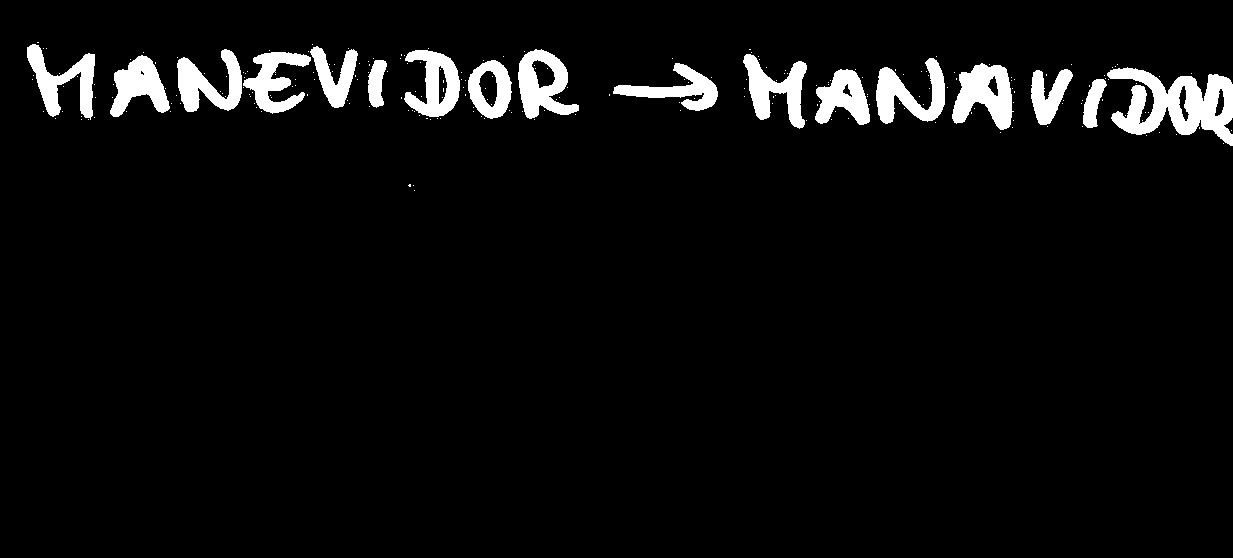 MANEVIDOR → MANAVIDOR